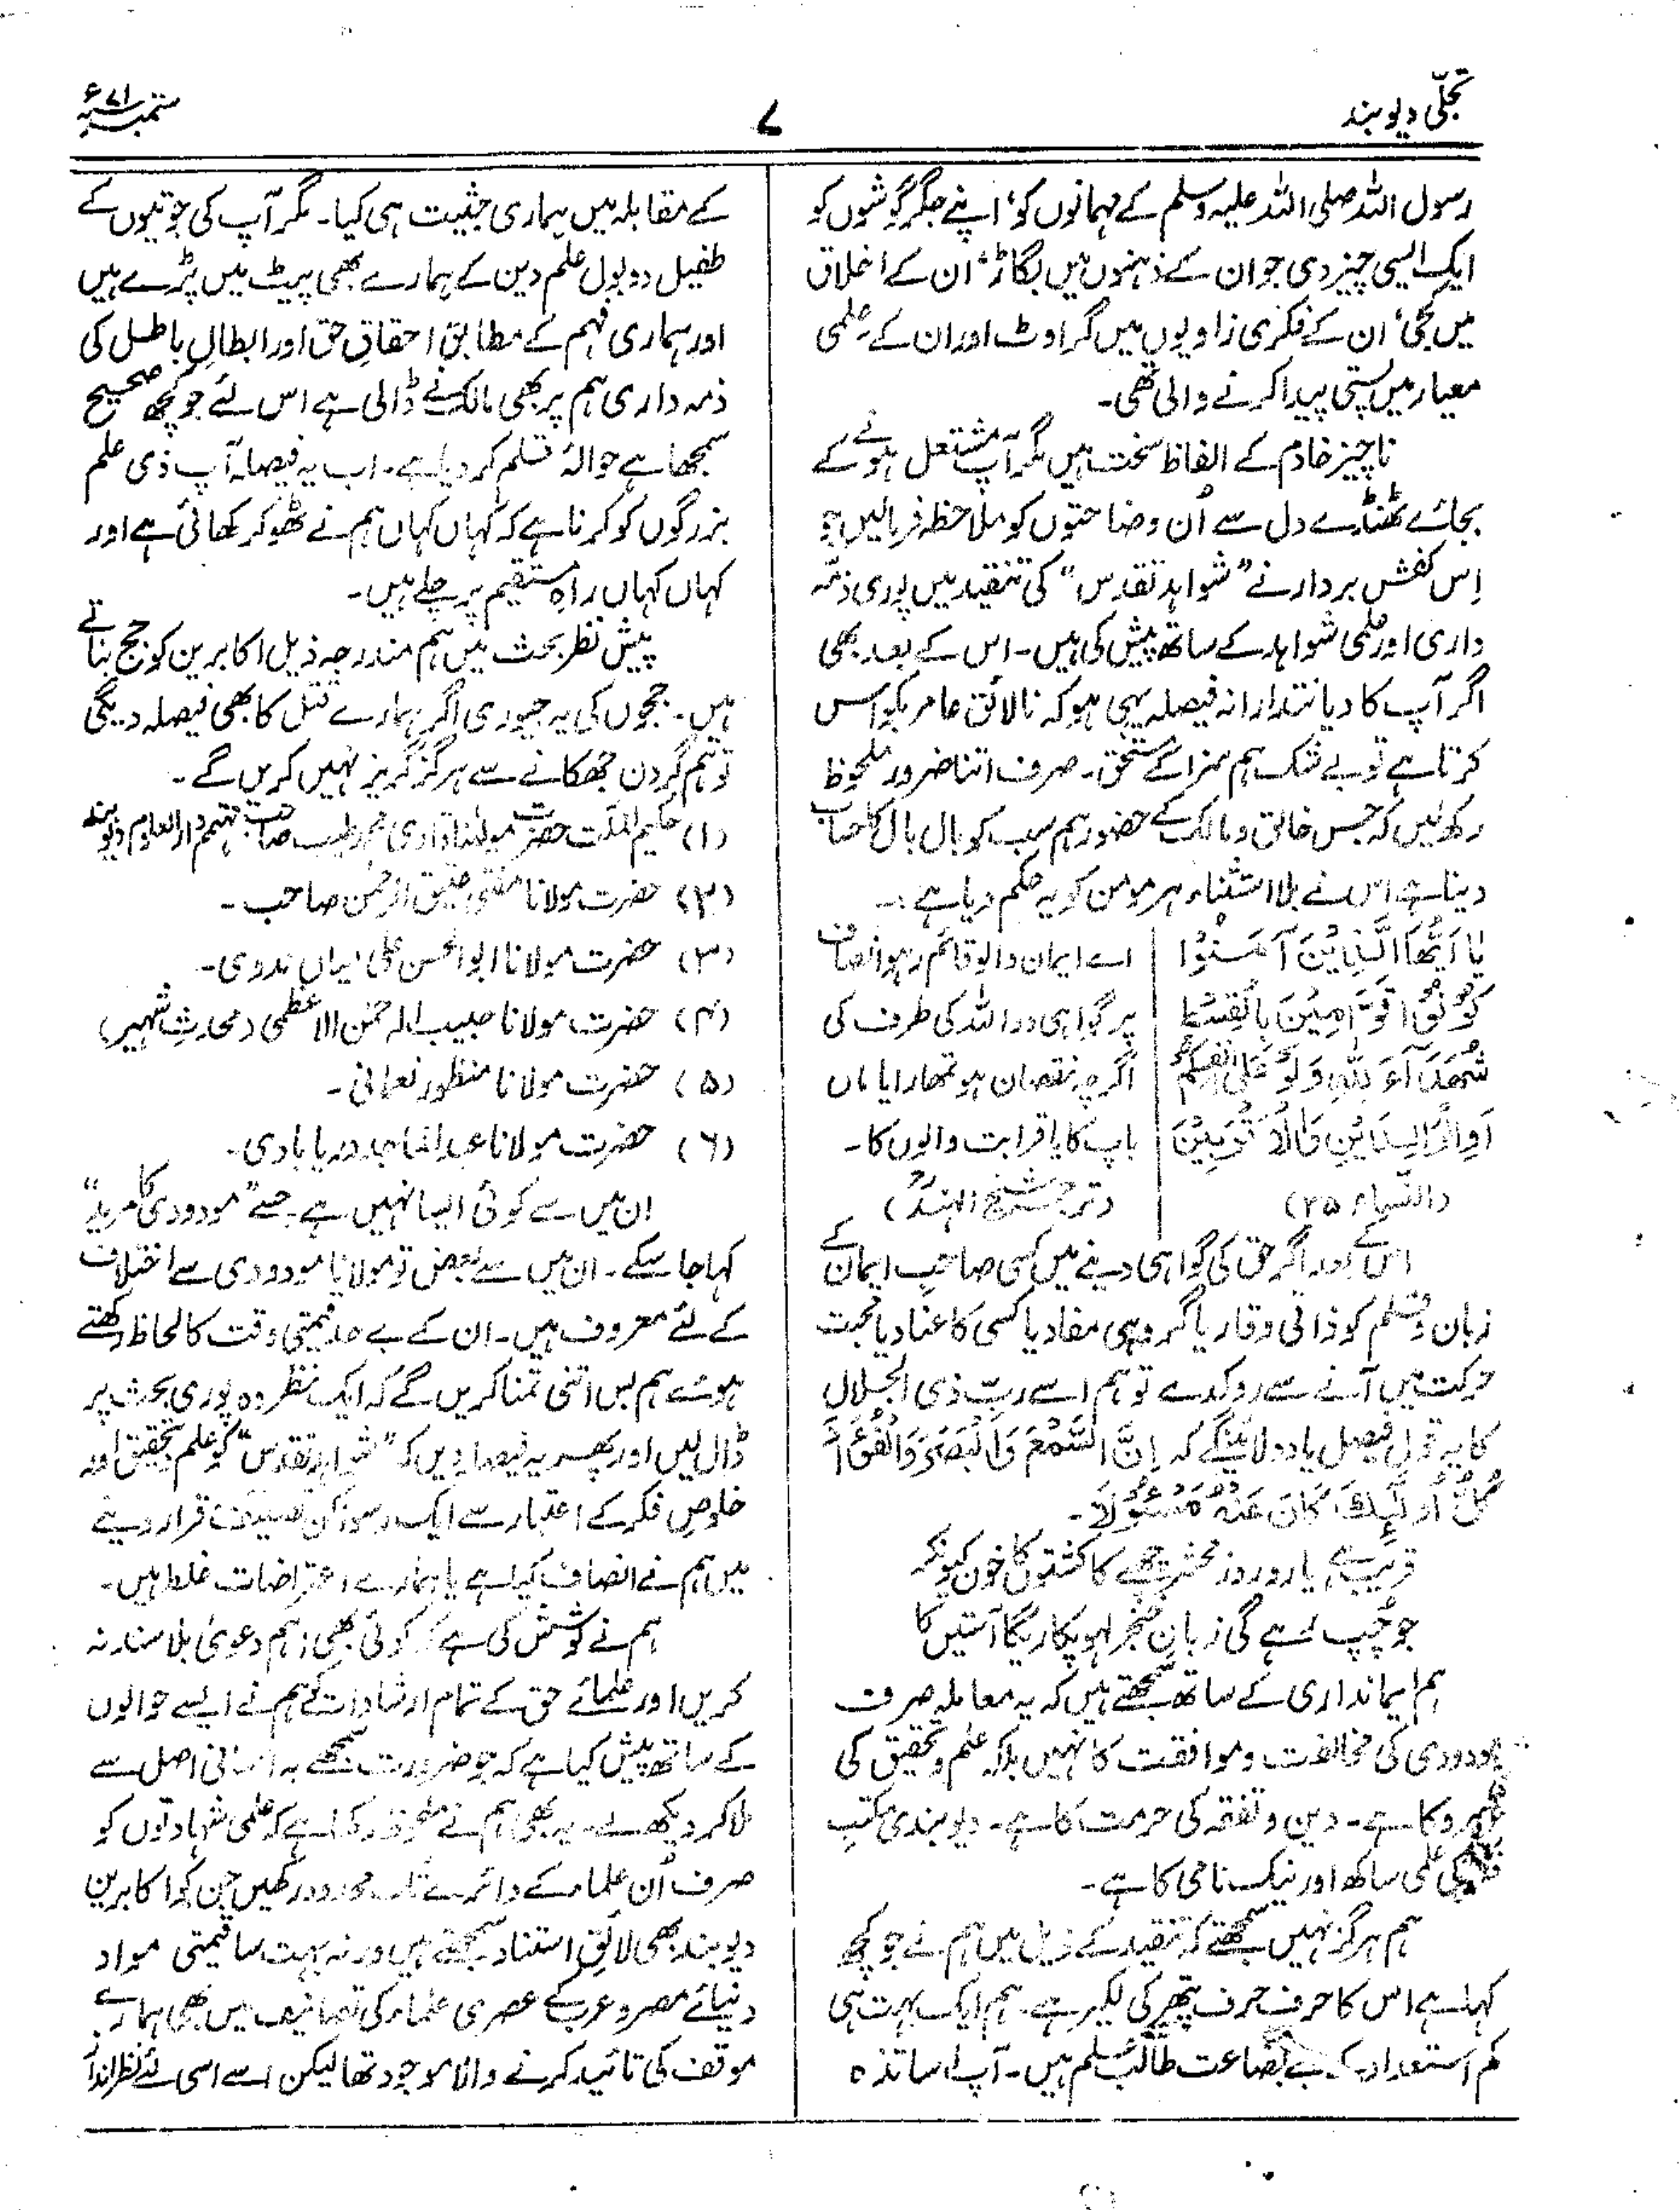 تجلّی دیوبند
۷
ستمبر ۷۱ء
رسول اللہ صلی اللہ علیہ وسلم کے مہمانوں کو، اپنے جگر گوشوں کو
ایک ایسی چیز دی جو ان کے ذہنوں میں بگاڑ، ان کے اخلاق
میں کجی، ان کے فکری زاویوں میں گراوٹ اور ان کے علمی
معیار میں پستی پیدا کرنے والی تھی۔
ناچیز خادم کے الفاظ سخت ہیں مگر آپ مشتعل ہونے کے
بجائے ٹھنڈے دل سے اُن وضاحتوں کو ملاحظہ فرمالیں جو
اِس کفش بردار نے "شواہد تقدس" کی تنقید میں پوری ذمّہ
داری اور علمی شواہد کے ساتھ پیش کی ہیں۔ اس کے بعد بھی
اگر آپ کا دیانتدارانہ فیصلہ یہی ہو کہ نالائق عامر بکواس
کرتا ہے تو بے شک ہم سزا کے مستحق۔ صرف اتنا ضرور ملحوظ
رکھ لیں کہ جس خالق و مالک کے حضور ہم سب کو بال بال کا حساب
دینا ہے اس نے بلا استثناء ہر مومن کو یہ حکم دیا ہے :۔
یَا اَیُّھَا الَّذِیْنَ آمَنُوْا
کُوْنُوْا قَوَّامِیْنَ بِالْقِسْطِ
شُھَدَآءَ لِلّٰہِ وَلَوْ عَلٰی اَنْفُسِکُمْ
اَوِالْوَالِدَیْنِ وَالْاَقْرَبِیْنَ
(النساء ۲۵)
اے ایمان والو قائم رہو انصاف
پر گواہی دو اللہ کی طرف کی
اگرچہ نقصان ہو تمھارا یا ماں
باپ کا یا قرابت والوں کا۔
(ترجمہ شیخ الہندؒ)
اس کے بعد اگر حق کی گواہی دینے میں کسی صاحبِ ایمان کے
زبان و قلم کو ذاتی وقار یا گروہی مفاد یا کسی کا عناد یا محبت
حرکت میں آنے سے روکدے تو ہم اسے ربِّ ذی الجلال
کا یہ قولِ فیصل یاد دلائینگے کہ اِنَّ السَّمْعَ وَالْبَصَرَ وَالْفُؤَادَ
کُلُّ اُولٰٓئِکَ کَانَ عَنْہُ مَسْئُوْلًا۔
قریب ہے یارو روزِ محشر چھپے گا کشتوں کا خون کیونکر
جو چُپ رہے گی زبانِ خنجر لہو پکاریگا آستیں کا
ہم ایمانداری کے ساتھ سمجھتے ہیں کہ یہ معاملہ صرف
مودودی کی مخالفت و موافقت کا نہیں بلکہ علم و تحقیق کی
آبرو کا ہے۔ دین و تفقہ کی حرمت کا ہے۔ دیوبندی مکتبِ
فکر کی علمی ساکھ اور نیک نامی کا ہے۔
ہم ہرگز نہیں سمجھتے کہ تنقید کے ذیل میں ہم نے جو کچھ
کہا ہے اس کا حرف حرف پتھر کی لکیر ہے۔ ہم ایک بہت ہی
کم استعداد بے بضاعت طالب علم ہیں۔ آپ اساتذہ
کے مقابلہ میں ہماری حیثیت ہی کیا۔ مگر آپ کی جوتیوں کے
طفیل دو بول علم دین کے ہمارے بھی پیٹ میں پڑے ہیں
اور ہماری فہم کے مطابق احقاقِ حق اور ابطالِ باطل کی
ذمہ داری ہم پر بھی مالک نے ڈالی ہے اس لئے جو کچھ صحیح
سمجھا ہے حوالۂ قلم کر دیا ہے۔ اب یہ فیصلہ آپ ذی علم
بزرگوں کو کرنا ہے کہ کہاں کہاں ہم نے ٹھوکر کھائی ہے اور
کہاں کہاں راہِ مستقیم پر چلے ہیں۔
پیش نظر بحث میں ہم مندرجہ ذیل اکابرین کو جج بناتے
ہیں۔ ججوں کی یہ جیوری اگر ہمارے قتل کا بھی فیصلہ دیگی
تو ہم گردن جھکانے سے ہرگز گریز نہیں کریں گے۔
(۱) حکیم الملّت حضرت مولٰنا قاری محمد طیب صاحب مہتمم دارالعلوم دیوبند
(۲) حضرت مولانا مفتی عتیق الرحمٰن صاحب۔
(۳) حضرت مولانا ابوالحسن علی میاں ندوی۔
(۴) حضرت مولانا حبیب الرحمٰن الاعظمی (محدثِ شہیر)
(۵) حضرت مولانا منظور نعمانی۔
(۶) حضرت مولانا عبدالماجد دریابادی۔
ان میں سے کوئی ایسا نہیں ہے جسے "مودودی کا مرید"
کہا جا سکے۔ ان میں سے بعض تو مولانا مودودی سے اختلاف
کے لئے معروف ہیں۔ ان کے بے حد قیمتی وقت کا لحاظ رکھتے
ہوئے ہم بس اتنی تمنا کریں گے کہ ایک نظر وہ پوری بحث پر
ڈال لیں اور پھر یہ فیصلہ دیں کہ "شواہد تقدس" کو علم و تحقیق اور
خلوصِ فکر کے اعتبار سے ایک رسوا کن تصنیف قرار دینے
میں ہم نے انصاف کیا ہے یا ہمارے اعتراضات غلط ہیں۔
ہم نے کوشش کی ہے کہ کوئی بھی اہم دعویٰ بلا سند نہ
کریں اور علمائے حق کے تمام ارشادات کو ہم نے ایسے حوالوں
کے ساتھ پیش کیا ہے کہ جو ضرورت سمجھے بہ آسانی اصل سے
ملا کر دیکھ لے۔ یہ بھی ہم نے ملحوظ رکھا ہے کہ علمی شہادتوں کو
صرف اُن علماء کے دائرے تک محدود رکھیں جن کو اکابرین
دیوبند بھی لائقِ استناد سمجھتے ہیں ورنہ بہت سا قیمتی مواد
دنیائے مصر و عرب کے عصری علماء کی تصانیف میں بھی ہمارے
موقف کی تائید کرنے والا موجود تھا لیکن اسے اسی لئے نظر انداز